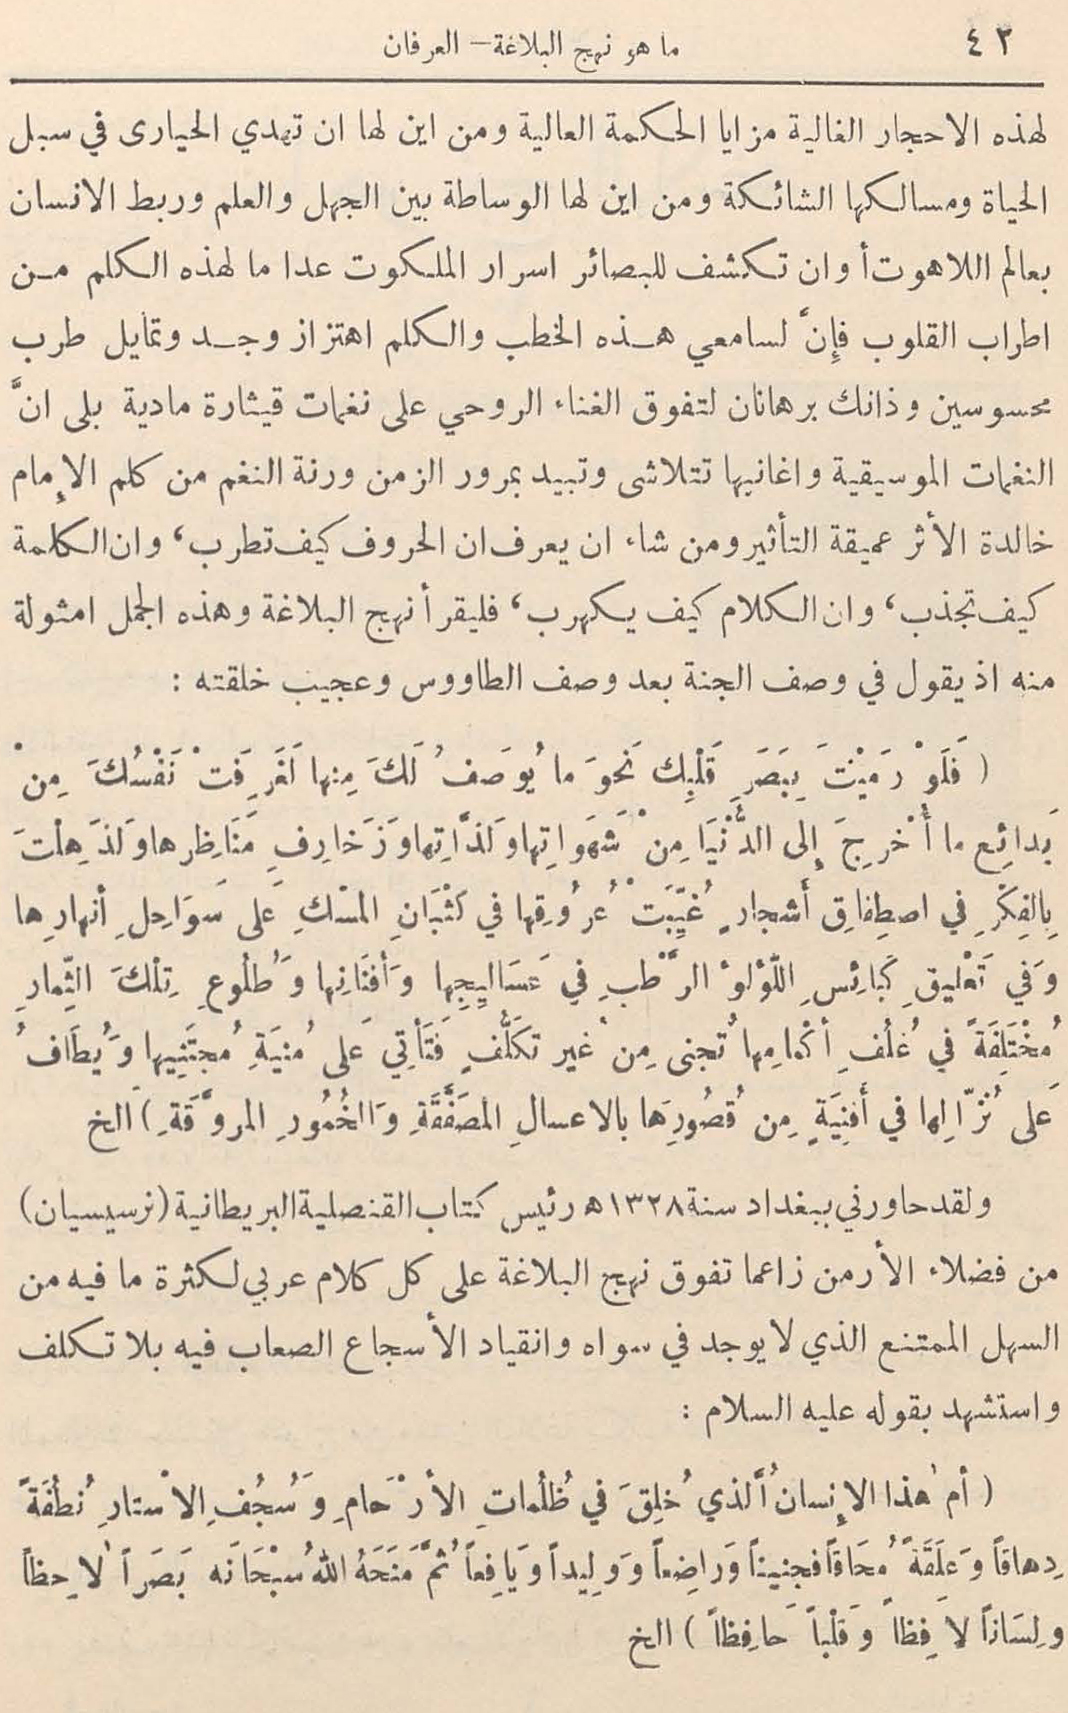 ٤٣ ما هو نهج البلاغة – العرفان
لهذه الاحجار الغالية مزايا الحكمة العالية ومن اين لها ان تهدي الحيارى في سبل
الحياة ومسالكها الشائكة ومن اين لها الوساطة بين الجهل والعلم وربط الانسان
بعالم اللاهوت أ وان تكشف للبصائر اسرار الملكوت عدا ما لهذه الكلم مـن
اطراب القلوب فإنَّ لسامعي هـذه الخطب والكلم اهتزاز وجـد وتمايل طرب
محسوسين وذانك برهانان لتفوق الغناء الروحي على نغمات قيثارة مادية بلى انَّ
النغمات الموسيقية واغانيها تتلاشى وتبيد بمرور الزمن ورنة النغم من كلم الإمام
خالدة الأثر عميقة التأثير ومن شاء ان يعرف ان الحروف كيف تطرب ، وان الكلمة
كيف تجذب ، وان الكلام كيف يكهرب ، فليقرأ نهج البلاغة وهذه الجمل امثولة
منه اذ يقول في وصف الجنة بعد وصف الطاووس وعجيب خلقته :
( فَلَوْ رَمَيْتَ بِبَصَرِ قَلْبِكَ نَحوَ ما يُوصَفُ لَكَ مِنها لَغَرِفَتْ نَفْسُكَ مِنْ
بَدائِعِ ما أُخْرِجَ إِلى الدُّنْيَا مِنْ شَهَواتِها وَلَذَّاتِها وَزَخارِفِ مَنَاظِرِها وَلَذَهِلْتَ
بِالفِكْرِ في اصطِفاقِ أَشجارٍ غُيِّبَتْ عُرُوقِها في كَثْبَانِ المسْكِ عَلى سَوَاحِلِ أنهارِها
وَفي تَعْليقِ كَبائِسِ اللّؤلؤ الرَّطْبِ في عَسَاليجِها وَأَفنَانِها وَطُلُوعِ تِلْكَ الثِّمارِ
مُخْتَلِفَةً في غُلُفِ أكْمامِها تُجنى مِنْ غَيرِ تكَلُّفٍ فَتَأْتي عَلى مُنيَةِ مُجتَنِيها وَيُطَافُ
عَلى نُزّالِها في أَفنِيَةِ مِن قُصُورِهَا بالاعسالِ المُصَفَّقَةِ وَالخُمُورِ المروَّقَةِ ) الخ
ولقد حاورني ببغداد سنة ١٣٢٨ ه رئيس كتاب القنصلية البريطانية (نرسيسيان)
من فضلاء الأرمن زاعما تفوق نهج البلاغة على كل كلام عربي لكثرة ما فيه من
السهل الممتنع الذي لا يوجد في سواه وانقياد الأسجاع الصعاب فيه بلا تكلف
واستشهد بقوله عليه السلام :
( أم هٰذا الإنسانُ الَّذي خُلِقَ في ظُلُماتِ الأرْحامِ وَسُجُفِ الاْستارِ نُطفَةً
دِهاقاً وَعَلَقَةً مُحَاقاً فجنيناً وَراضِعاً وَوَلِيداً وَيَافِعاً ثمَّ مَنَحَهُ اللهُ سُبْحَانَه بَصَراً لاحِظاً
ولِسَاناً لافِظاً وَقَلْباً حَافِظاً ) الخ